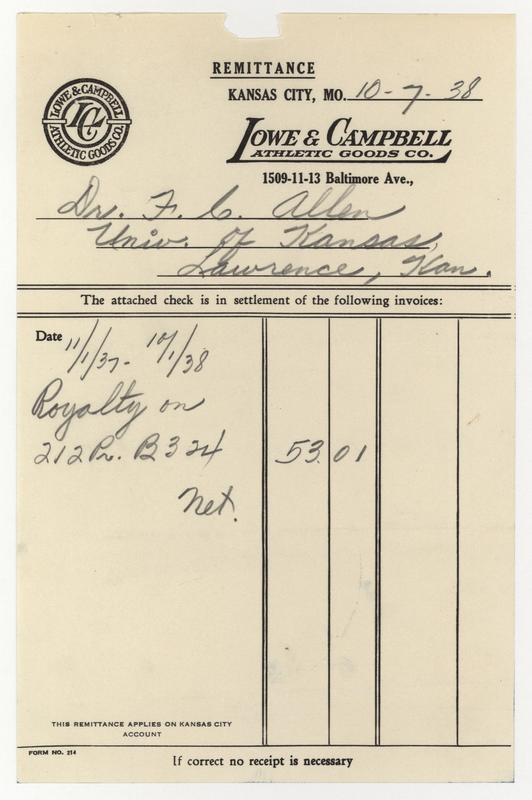 REMITTANCE
KANSAS CITY, MO. 10-7-38
LOWE & CAMPBELL
ATHLETIC GOODS CO.
LC
LOWE & CAMPBELL
ATHLETIC GOODS CO.
1509-11-13 Baltimore Ave.,
Dr. F. C. Allen
Univ. of Kansas,
Lawrence, Kan.
The attached check is in settlement of the following invoices:
Date 11/1/37 - 10/1/38
Royalty on
212 Pr. B324 53.01
Net.
THIS REMITTANCE APPLIES ON KANSAS CITY
ACCOUNT
FORM NO. 214
If correct no receipt is necessary